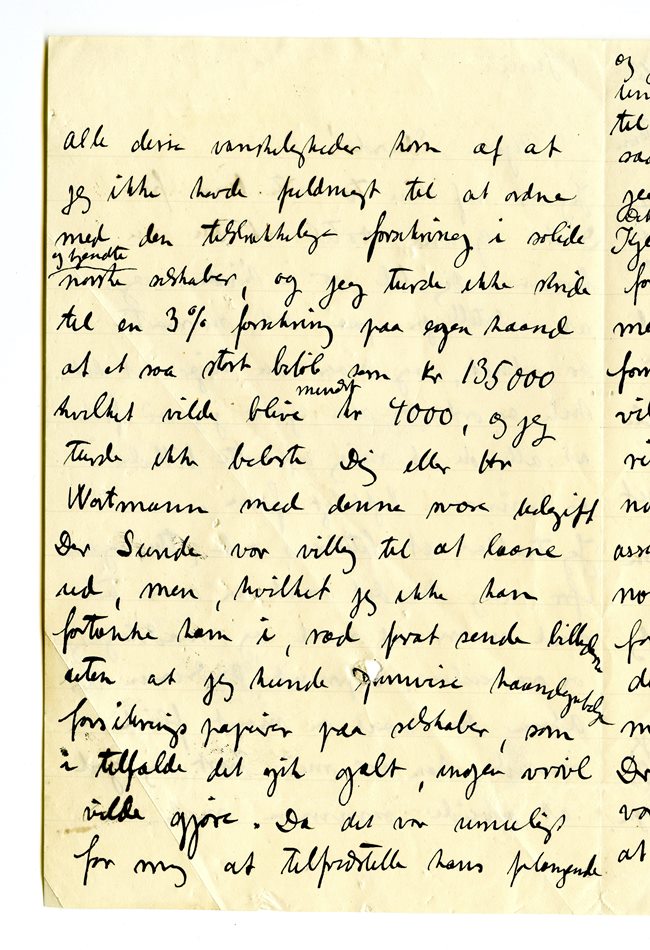 Alle disse vanskeligheder kom af at
jeg ikke havde fuldmagt til at ordne
med den tilstrækkelige forsikring i solide
og kjendte
norske selskaber, og jeg turde ikke skride
til en 3% forsikring paa egen haand
at et saa stort beløb som Kr 135000
mindst
hvilket vilde blive kr 4000, og jeg
turde ikke belaste Dig eller Hr
Wartmann med denne svære udgift
Der Sunde var villig til at laane
ud, men, hvilket jeg ikke kan
fortænke ham i, ræd forat sende billederne
uten at jeg kunde paavise haandgribelige
forsikringspapirer paa selskaber, som
i tilfælde det gik galt, ingen vrøvl
vilde gjøre. Da det var umuligt
for mig at tilfredstille hans
og
til
Det
fo
vil
no
fo
de
m
Der
va
at